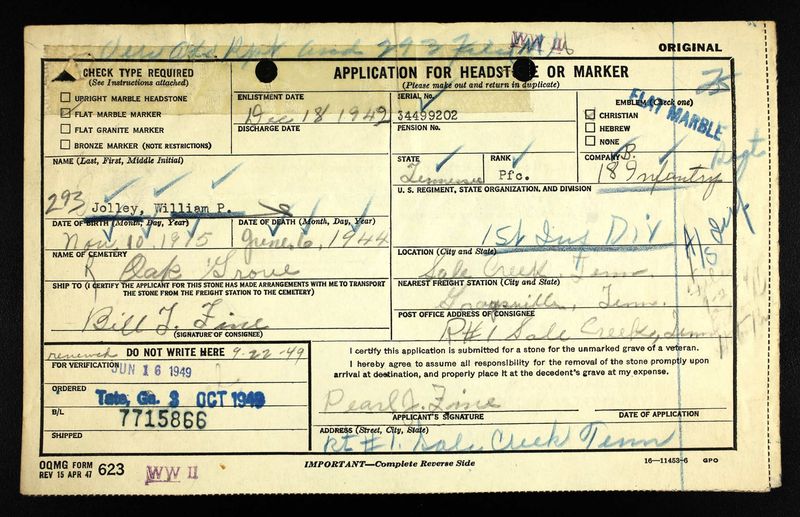 WW II
ORIGINAL
CHECK TYPE REQUIRED
(See Instructions attached)
UPRIGHT MARBLE HEADSTONE
FLAT MARBLE MARKER
FLAT GRANITE MARKER
BRONZE MARKER (NOTE RESTRICTIONS)
APPLICATION FOR HEADSTONE OR MARKER
(Please make out and return in duplicate)
ENLISTMENT DATE
Dec 18 1942
DISCHARGE DATE
SERIAL No.
34499202
PENSION No.
EMBLEM (Check one)
CHRISTIAN
HEBREW
NONE
FLAT MARBLE
STATE
Tennessee
RANK
Pfc.
COMPANY
B.
18 Infantry
Regt
NAME (Last, First, Middle Initial)
293 Jolley, William P.
U. S. REGIMENT, STATE ORGANIZATION, AND DIVISION
1st Inf Div
DATE OF BIRTH (Month, Day, Year)
Nov 10, 1915
DATE OF DEATH (Month, Day, Year)
June 6, 1944
NAME OF CEMETERY
Oak Grove
LOCATION (City and State)
Sale Creek Tenn.
SHIP TO (I CERTIFY THE APPLICANT FOR THIS STONE HAS MADE ARRANGEMENTS WITH ME TO TRANSPORT THE STONE FROM THE FREIGHT STATION TO THE CEMETERY)
NEAREST FREIGHT STATION (City and State)
Graysville, Tenn.
Bill L. Fine
(SIGNATURE OF CONSIGNEE)
POST OFFICE ADDRESS OF CONSIGNEE
Rt#1 Sale Creek, Tenn
renewed DO NOT WRITE HERE 9-22-49
FOR VERIFICATION
JUN 16 1949
ORDERED
Tate, Ga. 3 OCT 1949
B/L
7715866
SHIPPED
I certify this application is submitted for a stone for the unmarked grave of a veteran.
I hereby agree to assume all responsibility for the removal of the stone promptly upon arrival at destination, and properly place it at the decedent's grave at my expense.
Pearl J. Fine
APPLICANT'S SIGNATURE
DATE OF APPLICATION
ADDRESS (Street, City, State)
Rt #1. Sale Creek Tenn
OQMG FORM 623
REV 15 APR 47
WW II
IMPORTANT—Complete Reverse Side
16—11453-6 GPO